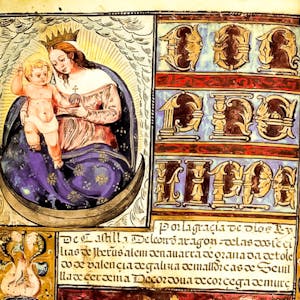 DON
PHE
LIPPE
Por la gracia de dios Rey
De Castilla De leon de aragon de las dos seci
lias de Iherusalem de navarra de granada de tole
do de valencia de galizia de mallorcas de Sevill
lla de cerdenia De cordova de corcega de murc